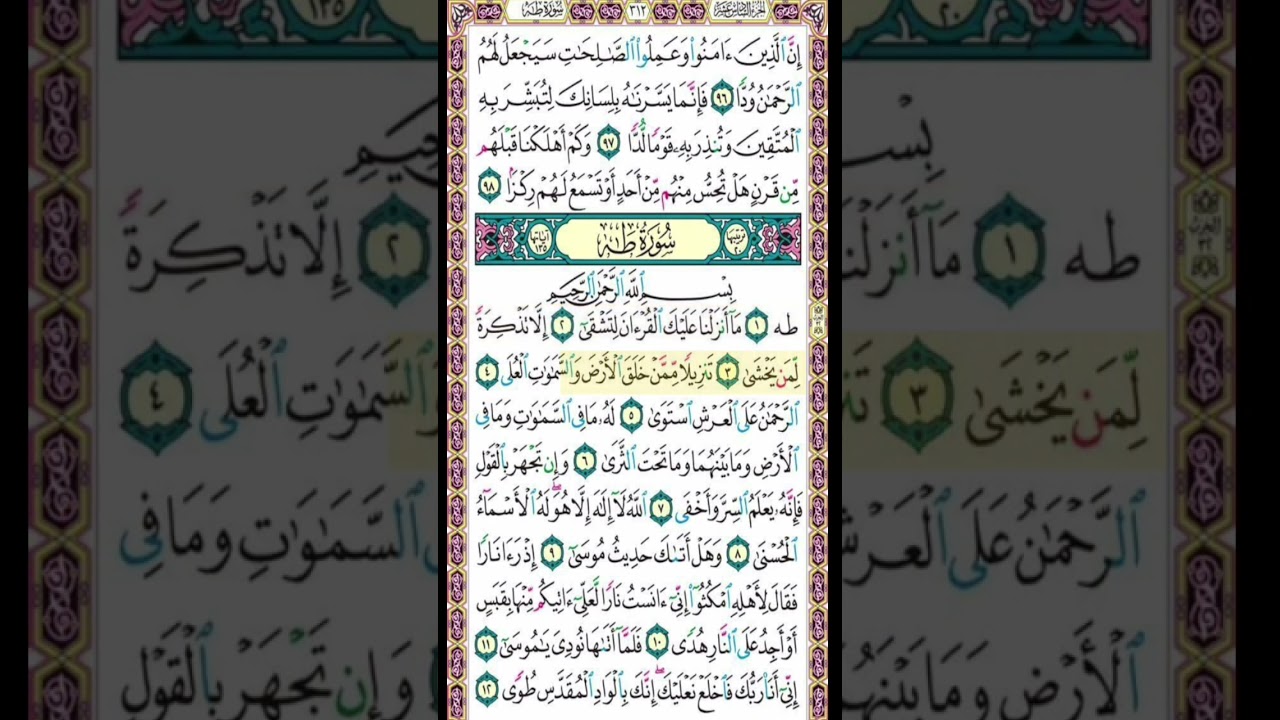 الجزء السادس عشر ٣١٢ سورة طه
إِنَّ ٱلَّذِينَ ءَامَنُوا۟ وَعَمِلُوا۟ ٱلصَّـٰلِحَـٰتِ سَيَجْعَلُ لَهُمُ
ٱلرَّحْمَـٰنُ وُدًّا ٩٦ فَإِنَّمَا يَسَّرْنَـٰهُ بِلِسَانِكَ لِتُبَشِّرَ بِهِ
ٱلْمُتَّقِينَ وَتُنذِرَ بِهِۦ قَوْمًا لُّدًّا ٩٧ وَكَمْ أَهْلَكْنَا قَبْلَهُم
مِّن قَرْنٍ هَلْ تُحِسُّ مِنْهُم مِّنْ أَحَدٍ أَوْ تَسْمَعُ لَهُمْ رِكْزًۢا ٩٨
ترتيبها ٢٠ سُورَةُ طه آياتها ١٣٥
بِسْمِ ٱللَّهِ ٱلرَّحْمَـٰنِ ٱلرَّحِيمِ
طه ١ مَآ أَنزَلْنَا عَلَيْكَ ٱلْقُرْءَانَ لِتَشْقَىٰٓ ٢ إِلَّا تَذْكِرَةً
لِّمَن يَخْشَىٰ ٣ تَنزِيلًا مِّمَّنْ خَلَقَ ٱلْأَرْضَ وَٱلسَّمَـٰوَٰتِ ٱلْعُلَى ٤
ٱلرَّحْمَـٰنُ عَلَى ٱلْعَرْشِ ٱسْتَوَىٰ ٥ لَهُۥ مَا فِى ٱلسَّمَـٰوَٰتِ وَمَا فِى
ٱلْأَرْضِ وَمَا بَيْنَهُمَا وَمَا تَحْتَ ٱلثَّرَىٰ ٦ وَإِن تَجْهَرْ بِٱلْقَوْلِ
فَإِنَّهُۥ يَعْلَمُ ٱلسِّرَّ وَأَخْفَى ٧ ٱللَّهُ لَآ إِلَـٰهَ إِلَّا هُوَ ۖ لَهُ ٱلْأَسْمَآءُ
ٱلْحُسْنَىٰ ٨ وَهَلْ أَتَىٰكَ حَدِيثُ مُوسَىٰٓ ٩ إِذْ رَءَا نَارًا
فَقَالَ لِأَهْلِهِ ٱمْكُثُوٓا۟ إِنِّىٓ ءَانَسْتُ نَارًا لَّعَلِّىٓ ءَاتِيكُم مِّنْهَا بِقَبَسٍ
أَوْ أَجِدُ عَلَى ٱلنَّارِ هُدًى ١٠ فَلَمَّآ أَتَىٰهَا نُودِىَ يَـٰمُوسَىٰٓ ١١
إِنِّىٓ أَنَا۠ رَبُّكَ فَٱخْلَعْ نَعْلَيْكَ ۖ إِنَّكَ بِٱلْوَادِ ٱلْمُقَدَّسِ طُوًى ١٢